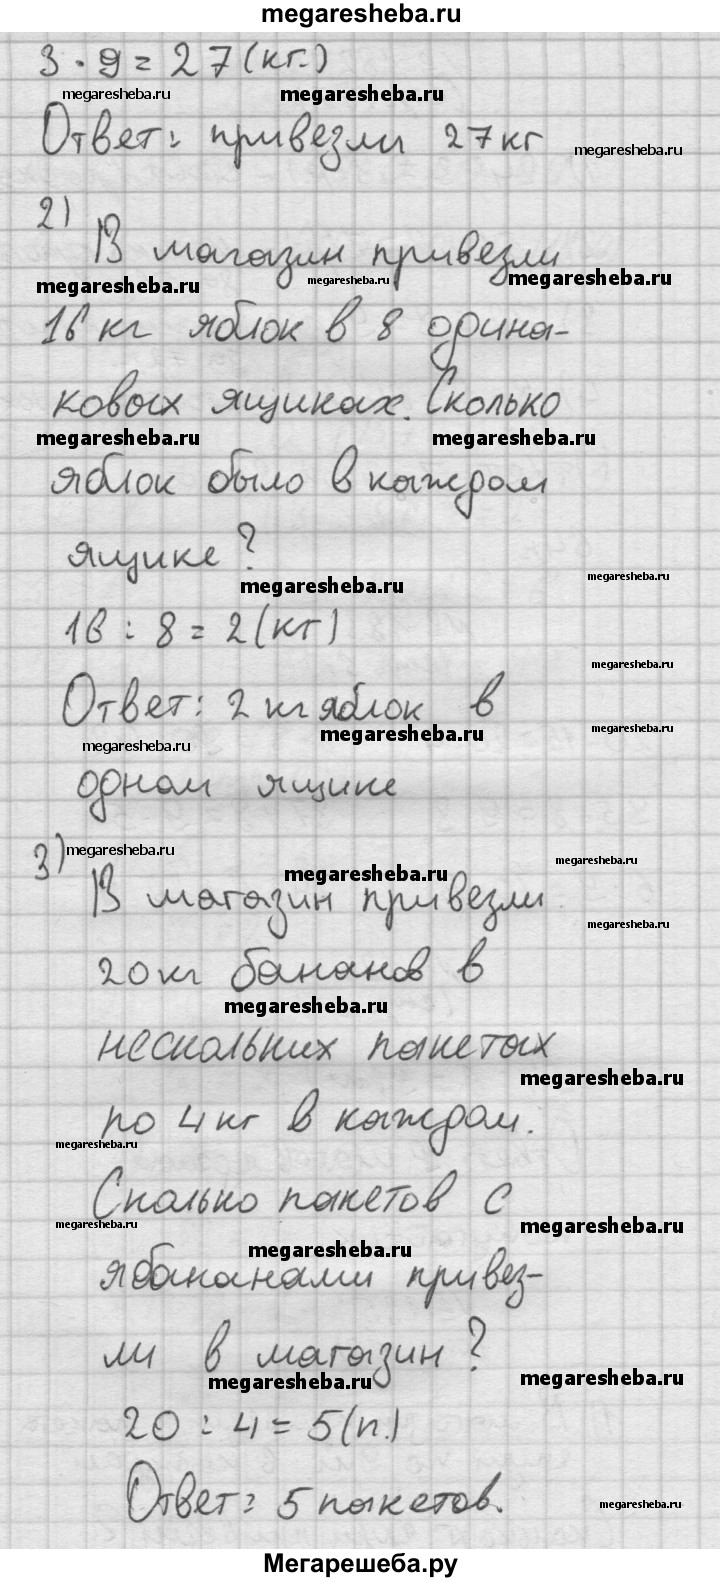 megaresheba.ru
3 · 9 = 27 (кг.)
megaresheba.ru megaresheba.ru
Ответ: привезли 27 кг
megaresheba.ru
2)
В магазин привезли
megaresheba.ru megaresheba.ru megaresheba.ru
16 кг яблок в 8 одина-
ковых ящиках. Сколько
megaresheba.ru megaresheba.ru
яблок было в каждом
ящике?
megaresheba.ru megaresheba.ru
16 : 8 = 2 (кг)
megaresheba.ru
Ответ: 2 кг яблок в
megaresheba.ru megaresheba.ru
megaresheba.ru
одном ящике
3) megaresheba.ru
megaresheba.ru megaresheba.ru
В магазин привезли
megaresheba.ru
20 кг бананов в
megaresheba.ru
нескольких пакетах
megaresheba.ru
по 4 кг в каждом.
megaresheba.ru
Сколько пакетов с
megaresheba.ru megaresheba.ru
megaresheba.ru
ябананами привез-
ли в магазин?
megaresheba.ru megaresheba.ru
20 : 4 = 5 (п.)
Ответ: 5 пакетов.
megaresheba.ru
Мегарешеба.ру